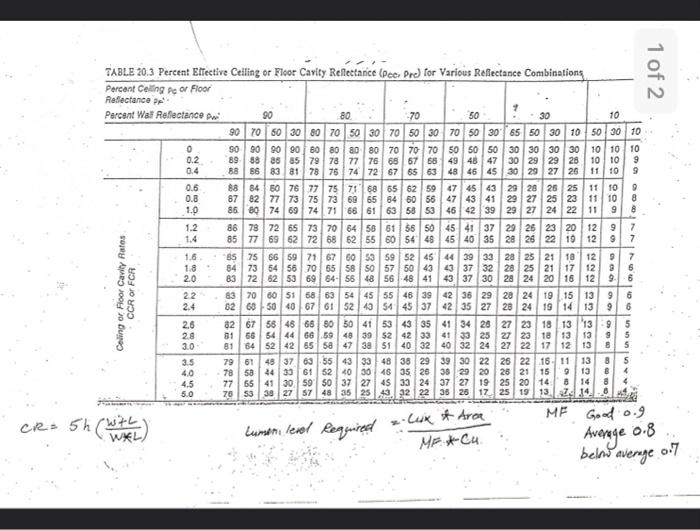 1 of 2
TABLE 20.3 Percent Effective Ceiling or Floor Cavity Reflectance (ρcc, ρfc) for Various Reflectance Combinations
Percent Ceiling ρc or Floor
Reflectance ρF
Percent Wall Reflectance ρw
90 80 70 50 30 10
90 70 50 30 80 70 50 30 70 50 30 70 50 30 65 50 30 10 50 30 10
0 90 90 90 90 80 80 80 80 70 70 70 50 50 50 30 30 30 30 10 10 10
0.2 89 88 86 85 79 78 77 76 68 67 66 49 48 47 30 29 29 28 10 10 9
0.4 88 86 83 81 78 76 74 72 67 65 63 48 46 45 30 29 27 26 11 10 9
0.6 88 84 80 76 77 75 71 68 65 62 59 47 45 43 29 28 26 25 11 10 9
0.8 87 82 77 73 75 73 69 65 64 60 56 47 43 41 29 27 25 23 11 10 8
1.0 86 80 74 69 74 71 66 61 63 58 53 46 42 39 29 27 24 22 11 9 8
1.2 86 78 72 65 73 70 64 58 61 56 50 45 41 37 29 26 23 20 12 9 7
1.4 85 77 69 62 72 68 62 55 60 54 48 45 40 35 28 26 22 19 12 9 7
1.6 85 75 66 59 71 67 60 53 59 52 45 44 39 33 28 25 21 18 12 9 7
1.8 84 73 64 56 70 65 58 50 57 50 43 43 37 32 28 25 21 17 12 9 6
2.0 83 72 62 53 69 64 56 48 56 48 41 43 37 30 28 24 20 16 12 9 6
2.2 83 70 60 51 68 63 54 45 55 46 39 42 36 29 28 24 19 15 13 9 6
2.4 82 68 50 40 67 61 52 43 54 45 37 42 35 27 28 24 19 14 13 9 6
2.6 82 67 56 46 66 60 50 41 53 43 35 41 34 26 27 23 18 13 13 9 5
2.8 81 66 54 44 66 59 48 39 52 42 33 41 33 25 27 23 18 13 13 9 5
3.0 81 64 52 42 65 58 47 38 51 40 32 40 32 24 27 22 17 12 13 8 5
3.5 79 61 48 37 63 55 43 33 48 38 29 39 30 22 26 22 16 11 13 8 5
4.0 78 58 44 33 61 52 40 30 46 35 26 38 29 20 26 21 15 9 13 8 4
4.5 77 65 41 30 59 50 37 27 45 33 24 37 27 19 25 20 14 8 14 8 4
5.0 76 53 38 27 57 48 35 25 43 32 22 36 26 17 25 19 13 14 8
Ceiling or Floor Cavity Rates
CCR or FCR
CR = 5h (W+L / W*L)
Lumens level Required = Lux * Area / MF * Cu
MF Good 0.9
Average 0.8
below average 0.7